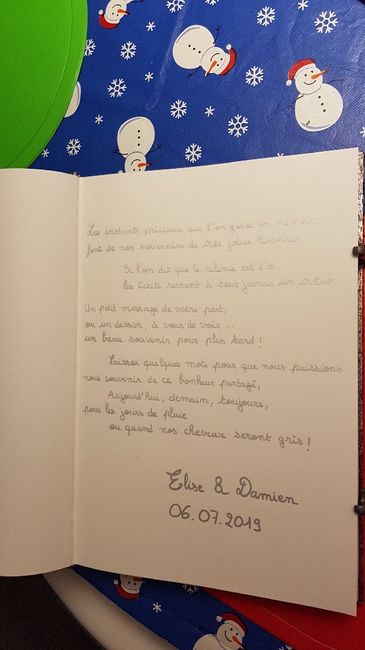 Les instants précieux que l'on garde en mémoire
font de nos souvenirs de très jolies histoires
Si l'on dit que le silence est d'or,
les écrits restent à tout jamais un trésor
Un petit message de votre part,
ou un dessin, à vous de voir ...
un beau souvenir pour plus tard !
Laissez quelques mots pour que nous puissions
nous souvenir de ce bonheur partagé,
Aujourd'hui, demain, toujours,
pour les jours de pluie
ou quand nos cheveux seront gris !
Elise & Damien
06.07.2019